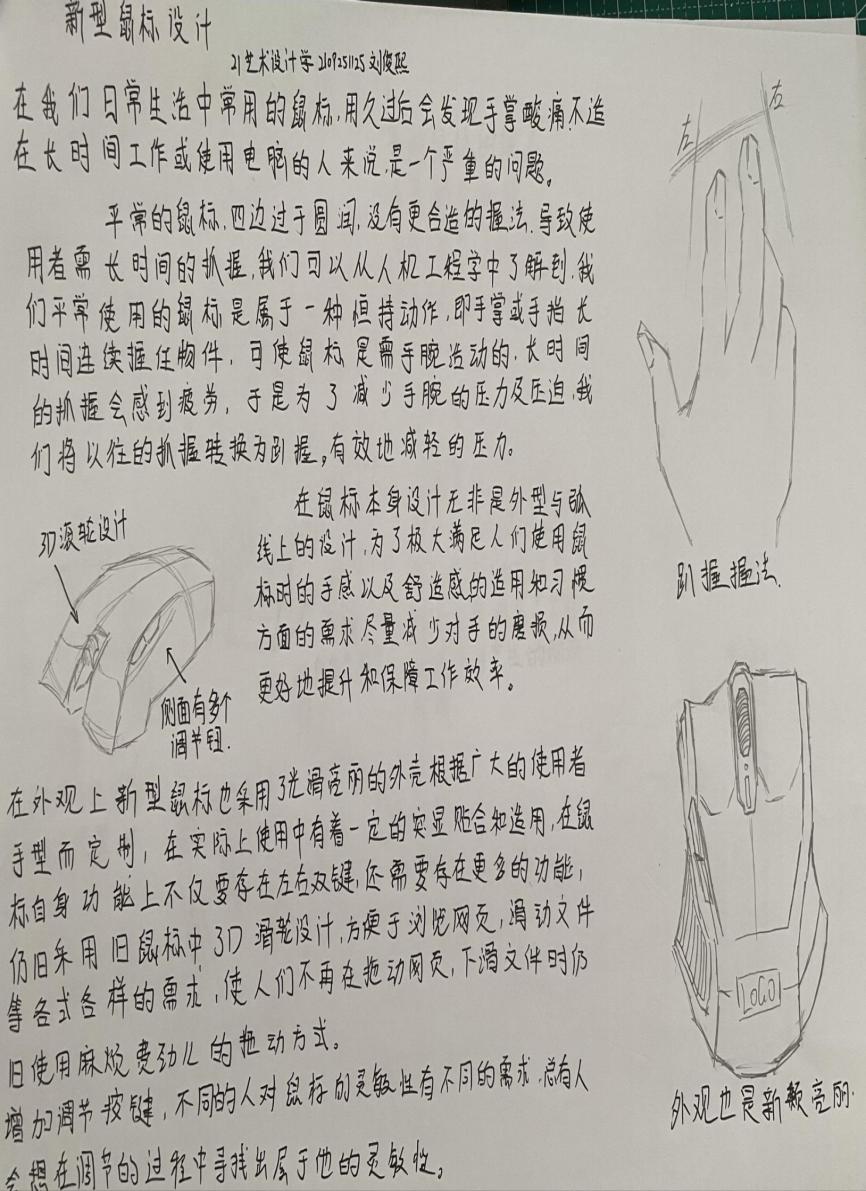 新型鼠标设计
21艺术设计学 2109251125 刘俊熙
在我们日常生活中常用的鼠标,用久过后会发现手掌酸痛,不适
在长时间工作或使用电脑的人来说,是一个严重的问题。
平常的鼠标,四边过于圆润,没有更合适的握法,导致使
用者需长时间的抓握,我们可以从人机工程学中了解到,我
们平常使用的鼠标是属于一种恒持动作,即手掌或手指长
时间连续握住物件,可使鼠标是需手腕活动的,长时间
的抓握会感到疲劳,于是为了减少手腕的压力及压迫,我
们将以往的抓握转换为趴握,有效地减轻的压力。
在鼠标本身设计无非是外型与弧
线上的设计,为了极大满足人们使用鼠
标时的手感以及舒适感,的适用和习惯
方面的需求尽量减少对手的磨损,从而
更好地提升和保障工作效率。
3D滚轮设计
侧面有多个
调节钮.
在外观上新型鼠标也采用了光滑亮丽的外壳根据广大的使用者
手型而定制,在实际上使用中有着一定的实显贴合和适用,在鼠
标自身功能上不仅要存在左右双键,还需要存在更多的功能,
仍旧采用旧鼠标中3D滑轮设计,方便于浏览网页,滑动文件
等各式各样的需求,使人们不再在拖动网页,下滑文件时仍
旧使用麻烦费劲儿的拖动方式。
增加调节按键,不同的人对鼠标的灵敏性有不同的需求,总有人
会想在调节的过程中寻找出属于他的灵敏性。
左
右
趴握握法.
LOGO
外观也是新颖亮丽.